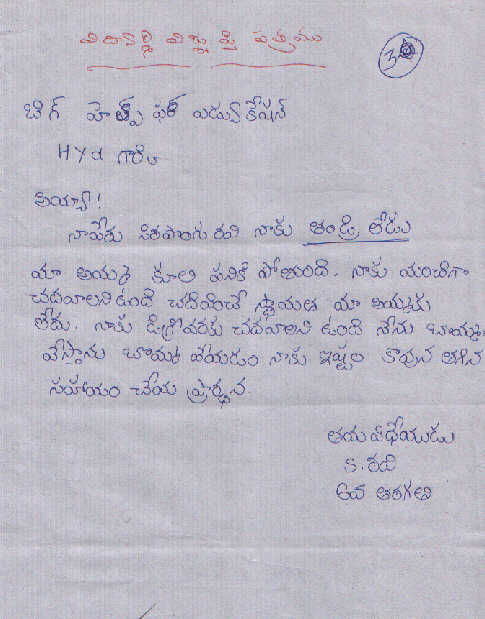 విద్యార్థి విజ్ఞప్తి పత్రము
3
బిగ్ హెల్ప్ ఫర్ ఎడ్యుకేషన్
Hyd గారికి
అయ్యా!
నాపేరు రవి నాకు తండ్రి లేడు
మా అమ్మ కూలి పనికి పోతుంది. నాకు మంచిగా
చదవాలని ఉంది చదివించే స్థోమత మా అమ్మకు
లేదు. నాకు డిగ్రీవరకు చదవాలని ఉంది నేను బొమ్మ
వేస్తాను బొమ్మ వేయడం నాకు ఇష్టం కావున తగిన
సహాయం చేయ ప్రార్థన.
తమ విధేయుడు
S. రవి
తరగతి